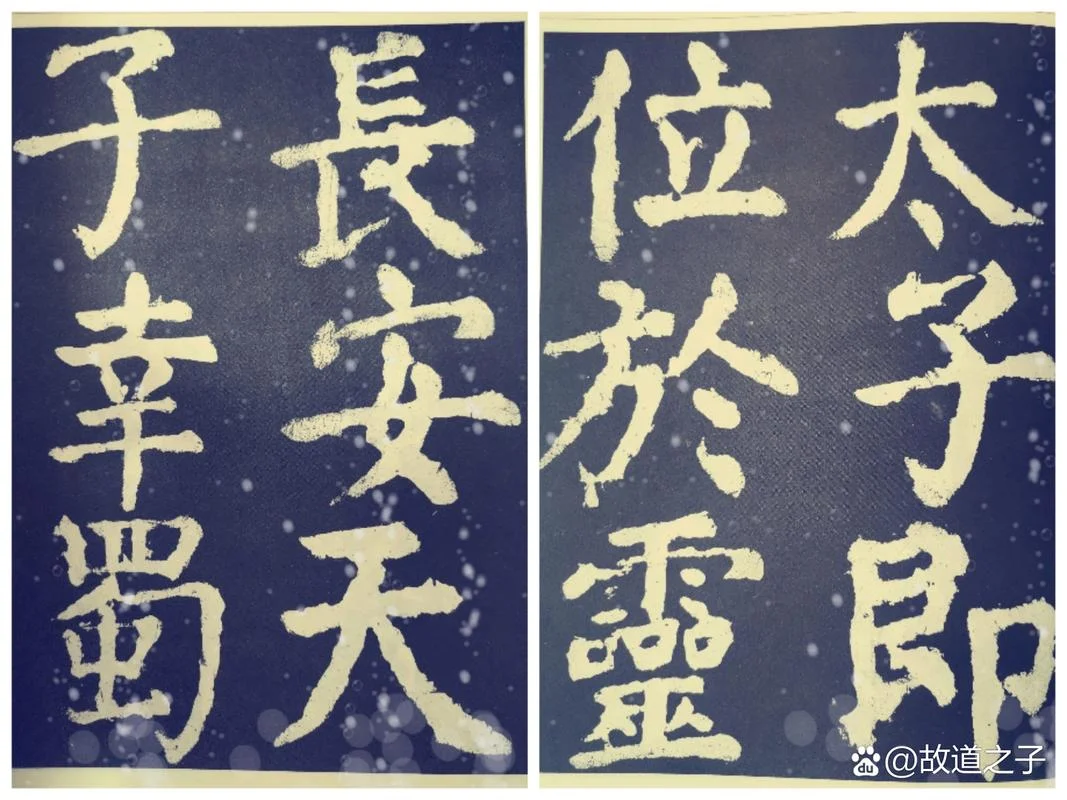 長安天
子幸蜀
太子即
位於靈
du @故道之子